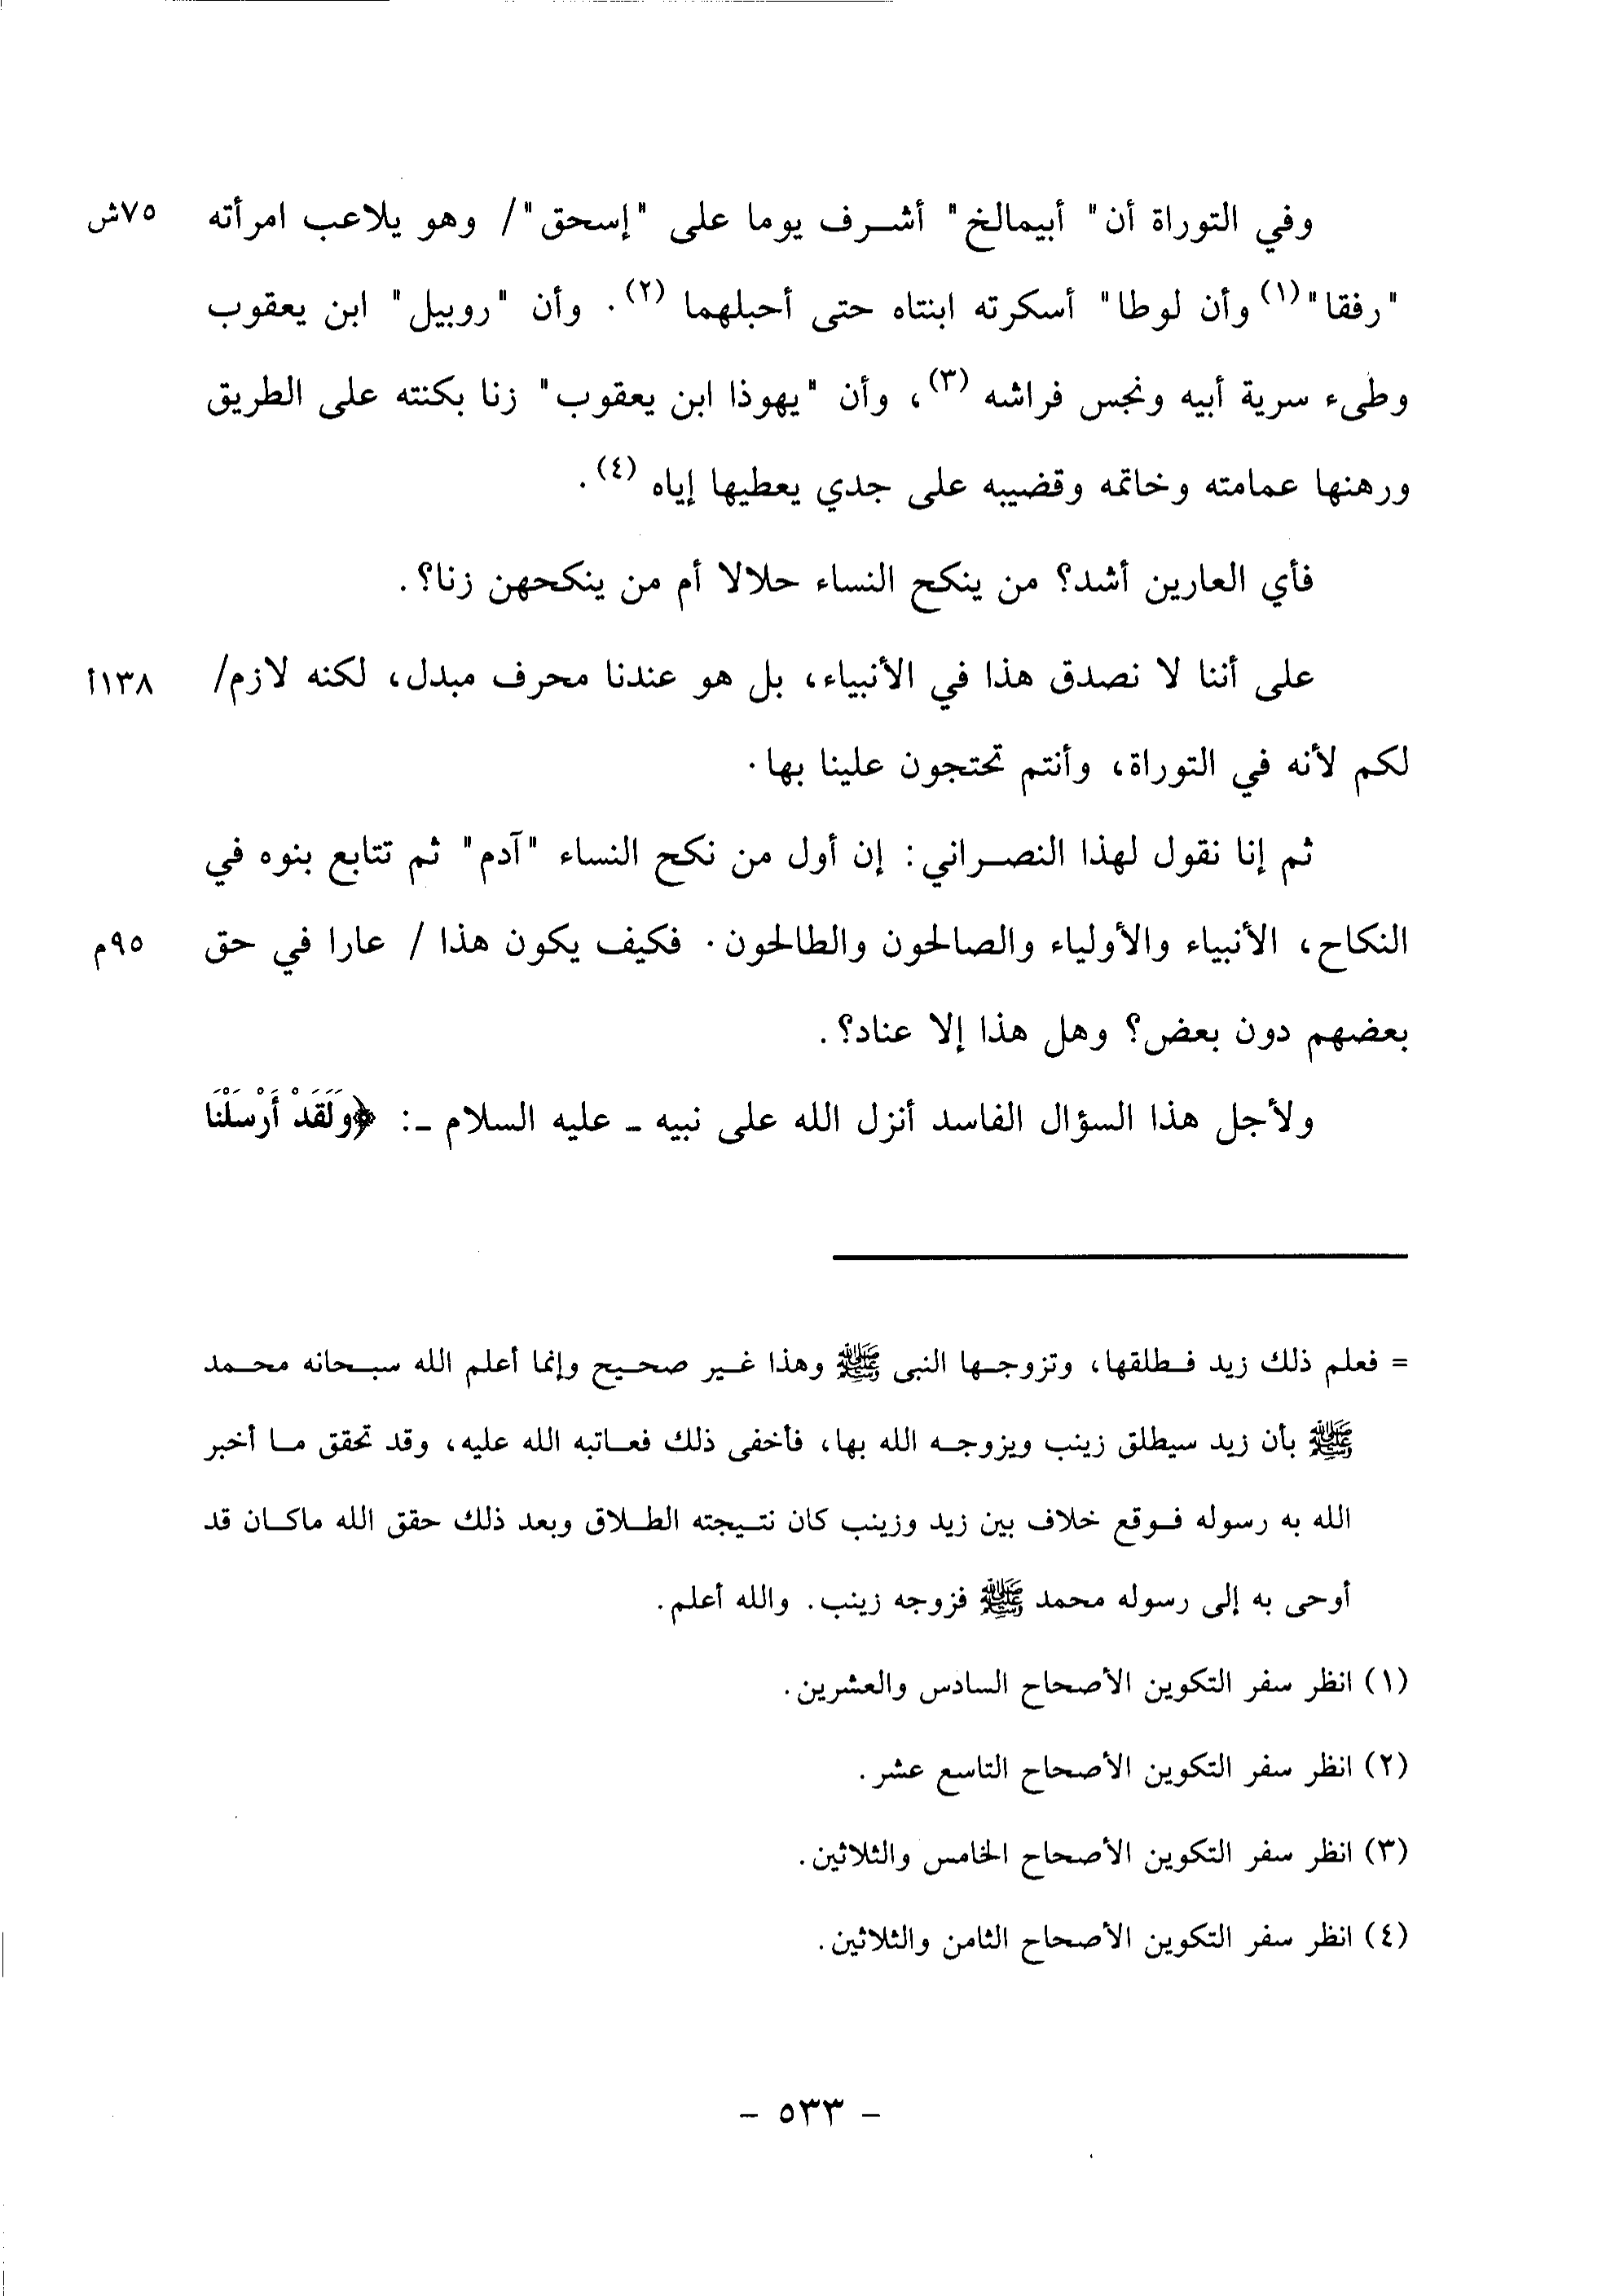 وفي التوراة أن" أبيمالخ" أشرف يوما على "إسحق"/ وهو يلاعب امرأته ٧٥ش
"رفقا"(١) وأن لوطا" أسكرته ابنتاه حتى أحبلهما (٢). وأن "روبيل" ابن يعقوب
وطىء سرية أبيه ونجس فراشه (٣)، وأن "يهوذا ابن يعقوب" زنا بكنته على الطريق
ورهنها عمامته وخاتمه وقضيبه على جدي يعطيها إياه (٤).
فأي العارين أشد؟ من ينكح النساء حلالا أم من ينكحهن زنا؟.
على أننا لا نصدق هذا في الأنبياء، بل هو عندنا محرف مبدل، لكنه لازم/ ١٣٨أ
لكم لأنه في التوراة، وأنتم تحتجون علينا بها.
ثم إنا نقول لهذا النصراني: إن أول من نكح النساء "آدم" ثم تتابع بنوه في
النكاح، الأنبياء والأولياء والصالحون والطالحون. فكيف يكون هذا / عارا في حق ٩٥م
بعضهم دون بعض؟ وهل هذا إلا عناد؟.
ولأجل هذا السؤال الفاسد أنزل الله على نبيه ـ عليه السلام ـ: ﴿وَلَقَدْ أَرْسَلْنَا
= فعلم ذلك زيد فطلقها، وتزوجها النبى ﷺ وهذا غير صحيح وإنما أعلم الله سبحانه محمد
ﷺ بأن زيد سيطلق زينب ويزوجه الله بها، فأخفى ذلك فعاتبه الله عليه، وقد تحقق ما أخبر
الله به رسوله فوقع خلاف بين زيد وزينب كان نتيجته الطلاق وبعد ذلك حقق الله ماكان قد
أوحى به إلى رسوله محمد ﷺ فزوجه زينب. والله أعلم.
(١) انظر سفر التكوين الأصحاح السادس والعشرين.
(٢) انظر سفر التكوين الأصحاح التاسع عشر.
(٣) انظر سفر التكوين الأصحاح الخامس والثلاثين.
(٤) انظر سفر التكوين الأصحاح الثامن والثلاثين.
- ٥٣٣ -